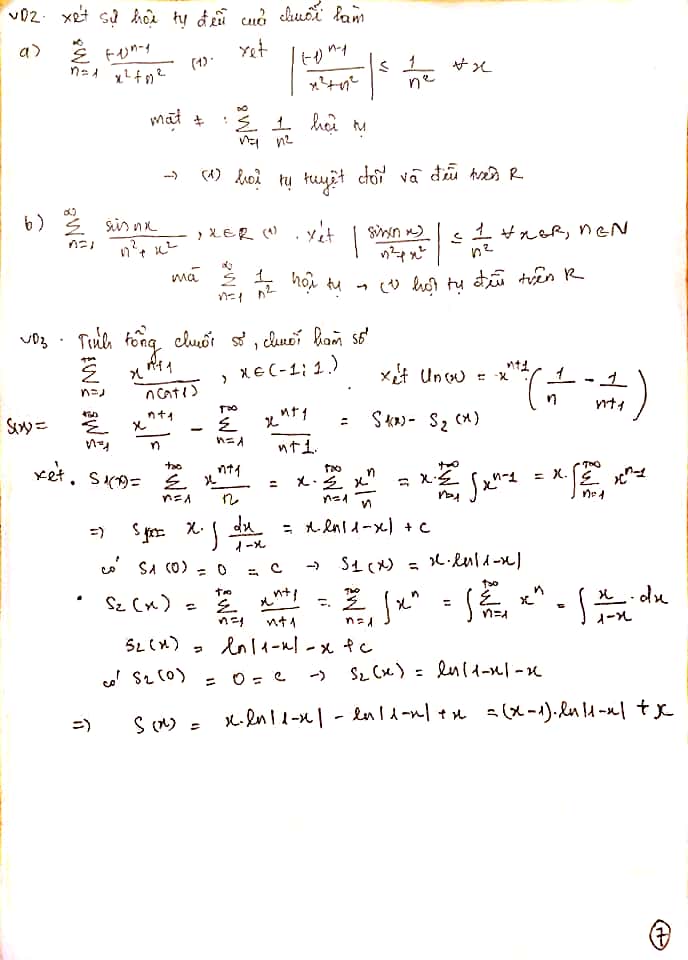 VD2. xét sự hội tụ đều của chuỗi hàm
a) \sum_{n=1}^{\infty} \frac{(-1)^{n-1}}{x^2+n^2} (1). xét \left| \frac{(-1)^{n-1}}{x^2+n^2} \right| \le \frac{1}{n^2} \forall x
mặt ≠ : \sum_{n=1}^{\infty} \frac{1}{n^2} hội tụ
→ (1) hội tụ tuyệt đối và đều trên R
b) \sum_{n=1}^{\infty} \frac{\sin nx}{n^2+x^2}, x∈R (1). xét \left| \frac{\sin(nx)}{n^2+x^2} \right| \le \frac{1}{n^2} \forall x∈R, n∈N
mà \sum_{n=1}^{\infty} \frac{1}{n^2} hội tụ → (1) hội tụ đều trên R
VD3. Tính tổng chuỗi số, chuỗi hàm số
\sum_{n=1}^{+\infty} \frac{x^{n+1}}{n(n+1)}, x∈(-1;1.) xét Un(x) = x^{n+1} \left( \frac{1}{n} - \frac{1}{n+1} \right)
S(x) = \sum_{n=1}^{+\infty} \frac{x^{n+1}}{n} - \sum_{n=1}^{+\infty} \frac{x^{n+1}}{n+1.} = S1(x) - S_2(x)
xét. S1(x) = \sum_{n=1}^{+\infty} \frac{x^{n+1}}{n} = x. \sum_{n=1}^{+\infty} \frac{x^n}{n} = x. \sum_{n=1}^{+\infty} \int x^{n-1} = x. \int \sum_{n=1}^{+\infty} x^{n-1}
=> x. \int \frac{dx}{1-x} = x.ln|1-x| + c
có S1(0) = 0 = c → S1(x) = x.ln|1-x|
• S2(x) = \sum_{n=1}^{+\infty} \frac{x^{n+1}}{n+1} = \sum_{n=1}^{+\infty} \int x^n = \int \sum_{n=1}^{+\infty} x^n = \int \frac{x}{1-x}.dx
S2(x) = ln|1-x| - x + c
có S2(0) = 0 = c → S2(x) = ln|1-x| - x
=> S(x) = x.ln|1-x| - ln|1-x| + x = (x-1).ln|1-x| + x
7